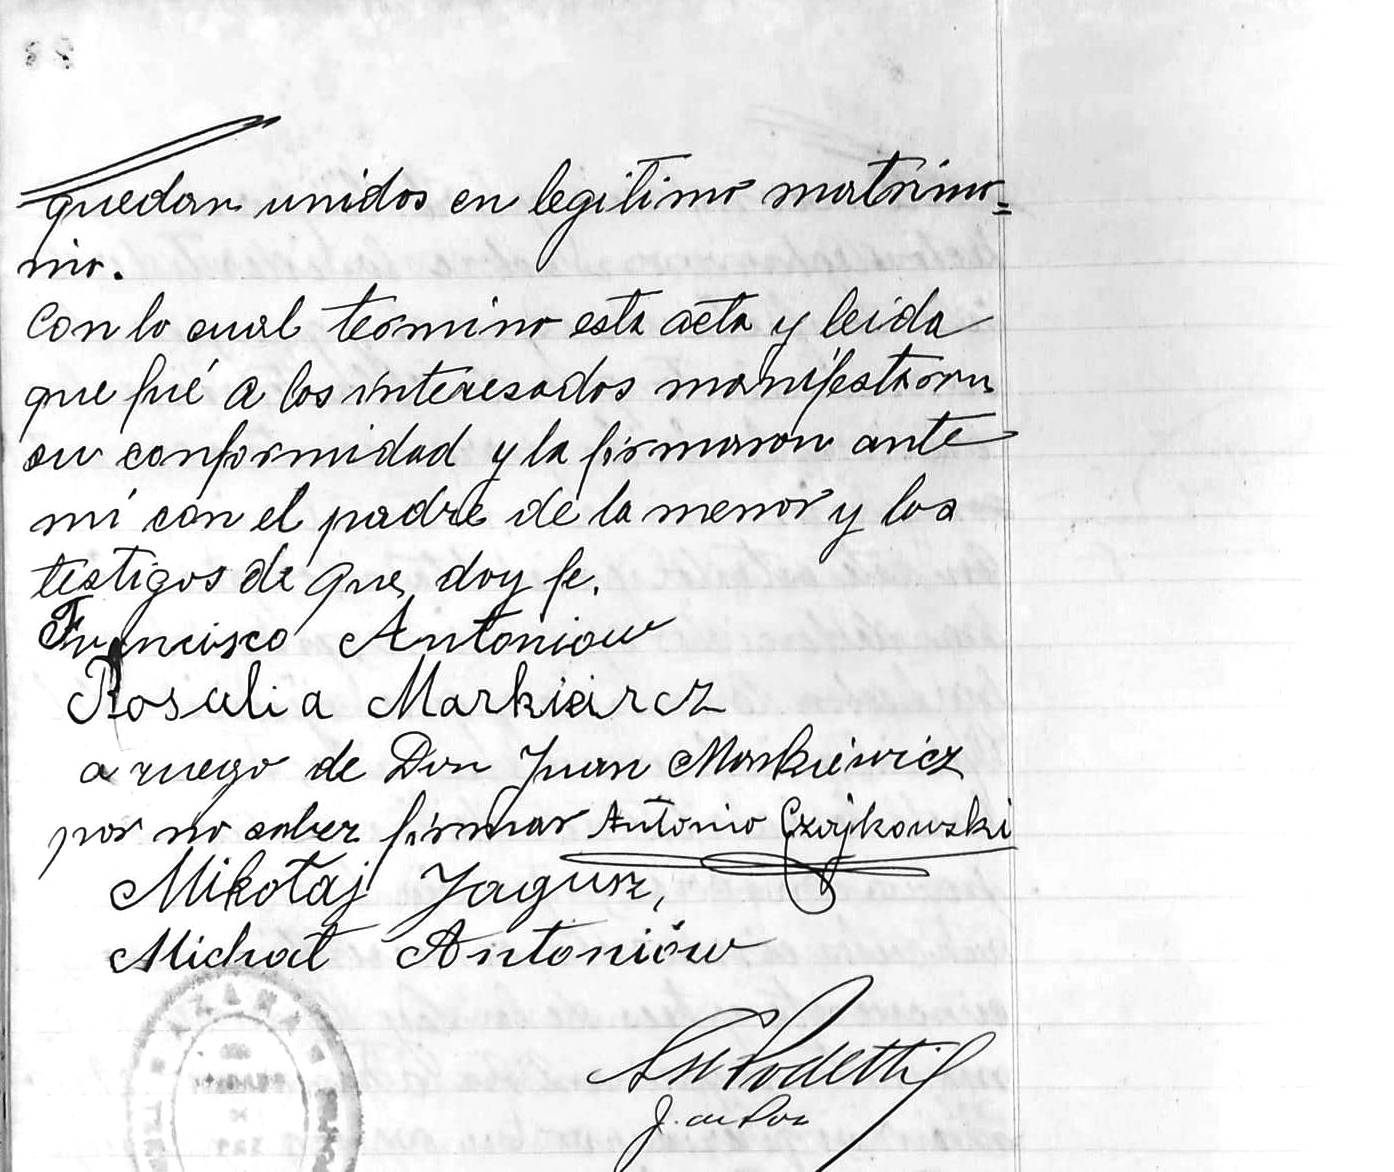 quedan unidos en legitimo matrimo=
nio.
Con lo cual termino esta acta y leida
que fué a los interesados manifestaron
su conformidad y la firmaron ante
mi con el padre de la menor y los
testigos de que doy fe.
Francisco Antoniow
Rosalia Markieircz
a ruego de Don Juan Markiewicz
por no saber firmar Antonio Czajkowski
Mikołaj Jagusz,
Michał Antoniów
Podetti
J. de Paz
AZARA